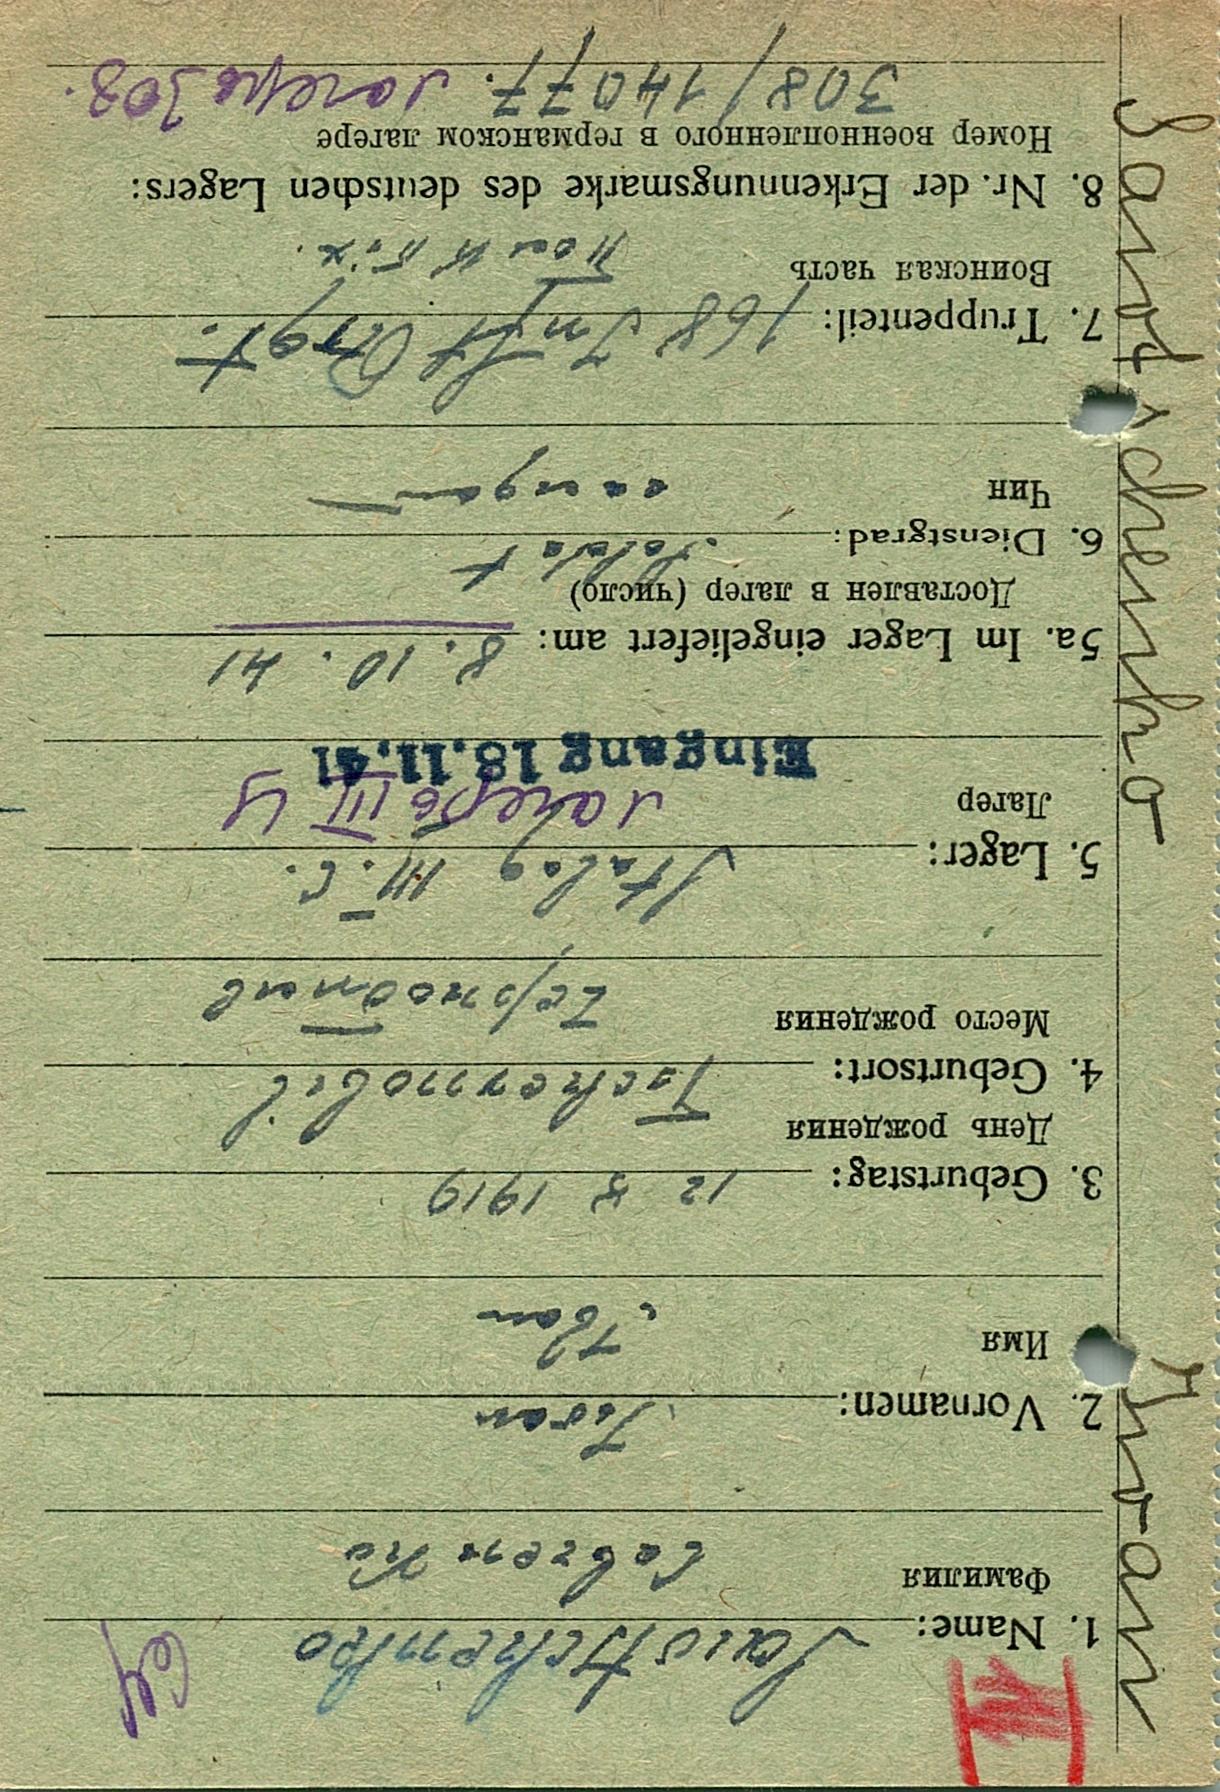 1. Name: Sawtschenko
Фамилия Савченко
2. Vornamen: Iwan
Имя Иван
3. Geburtstag: 12 8 1919
День рождения
4. Geburtsort: Tschernobil
Место рождения
5. Lager: Stalag III. C.
Лагер
Eingang 18.11.41
5a. Im Lager eingeliefert am: 8. 10. 41
Доставлен в лагер (число)
6. Dienstgrad: Soldat
Чин солдат
7. Truppenteil: 168
Воинская часть
8. Nr. der Erkennungsmarke des deutschen Lagers:
Номер военнопленного в германском лагере
308/14077. лагерь 308.
Sawtschenko Iwan